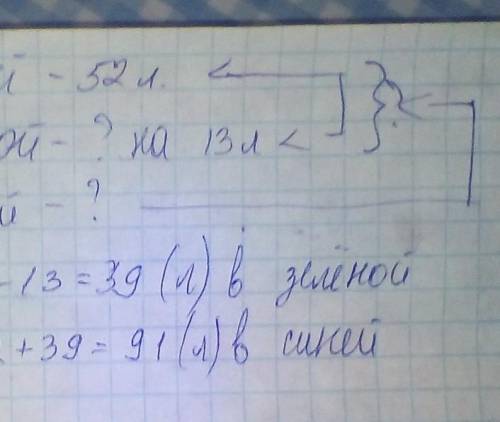 й - 52 л. <
ой - ? на 13 л < } ?
й - ?
- 13 = 39 (л) в зелёной
+ 39 = 91 (л) в синей